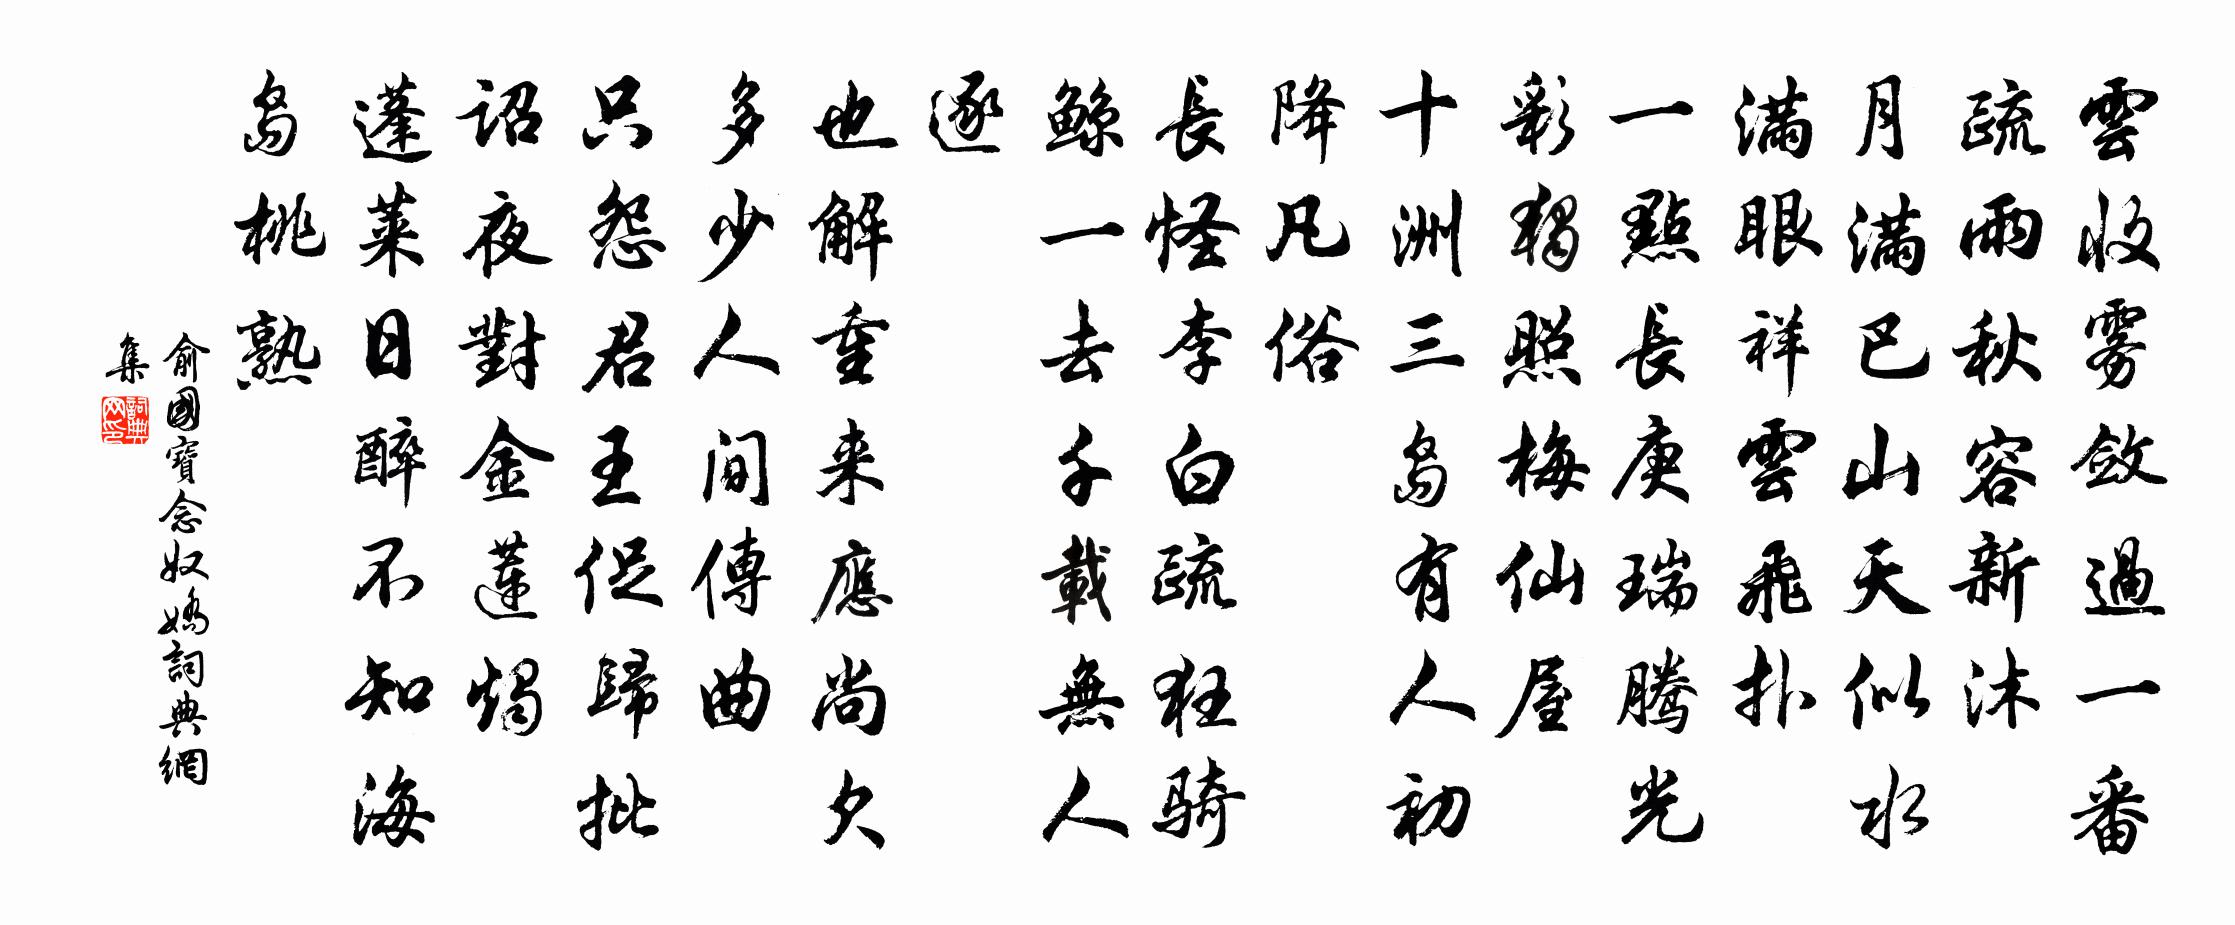 雲收雾斂過一番
疏雨秋容新沐
月滿巴山天似水
滿眼祥雲飛扑
一點長庚瑞腾光
彩獨照梅仙屋
十洲三島有人初
降凡俗
長怪李白疏狂騎
鲸一去千載無人
逐
也解重来應尚欠
多少人间傳曲
只怨君王促歸批
詔夜對金蓮燭
蓬莱日醉不知海
島桃熟
俞國寶念奴嬌詞典網
集
詞典
网印